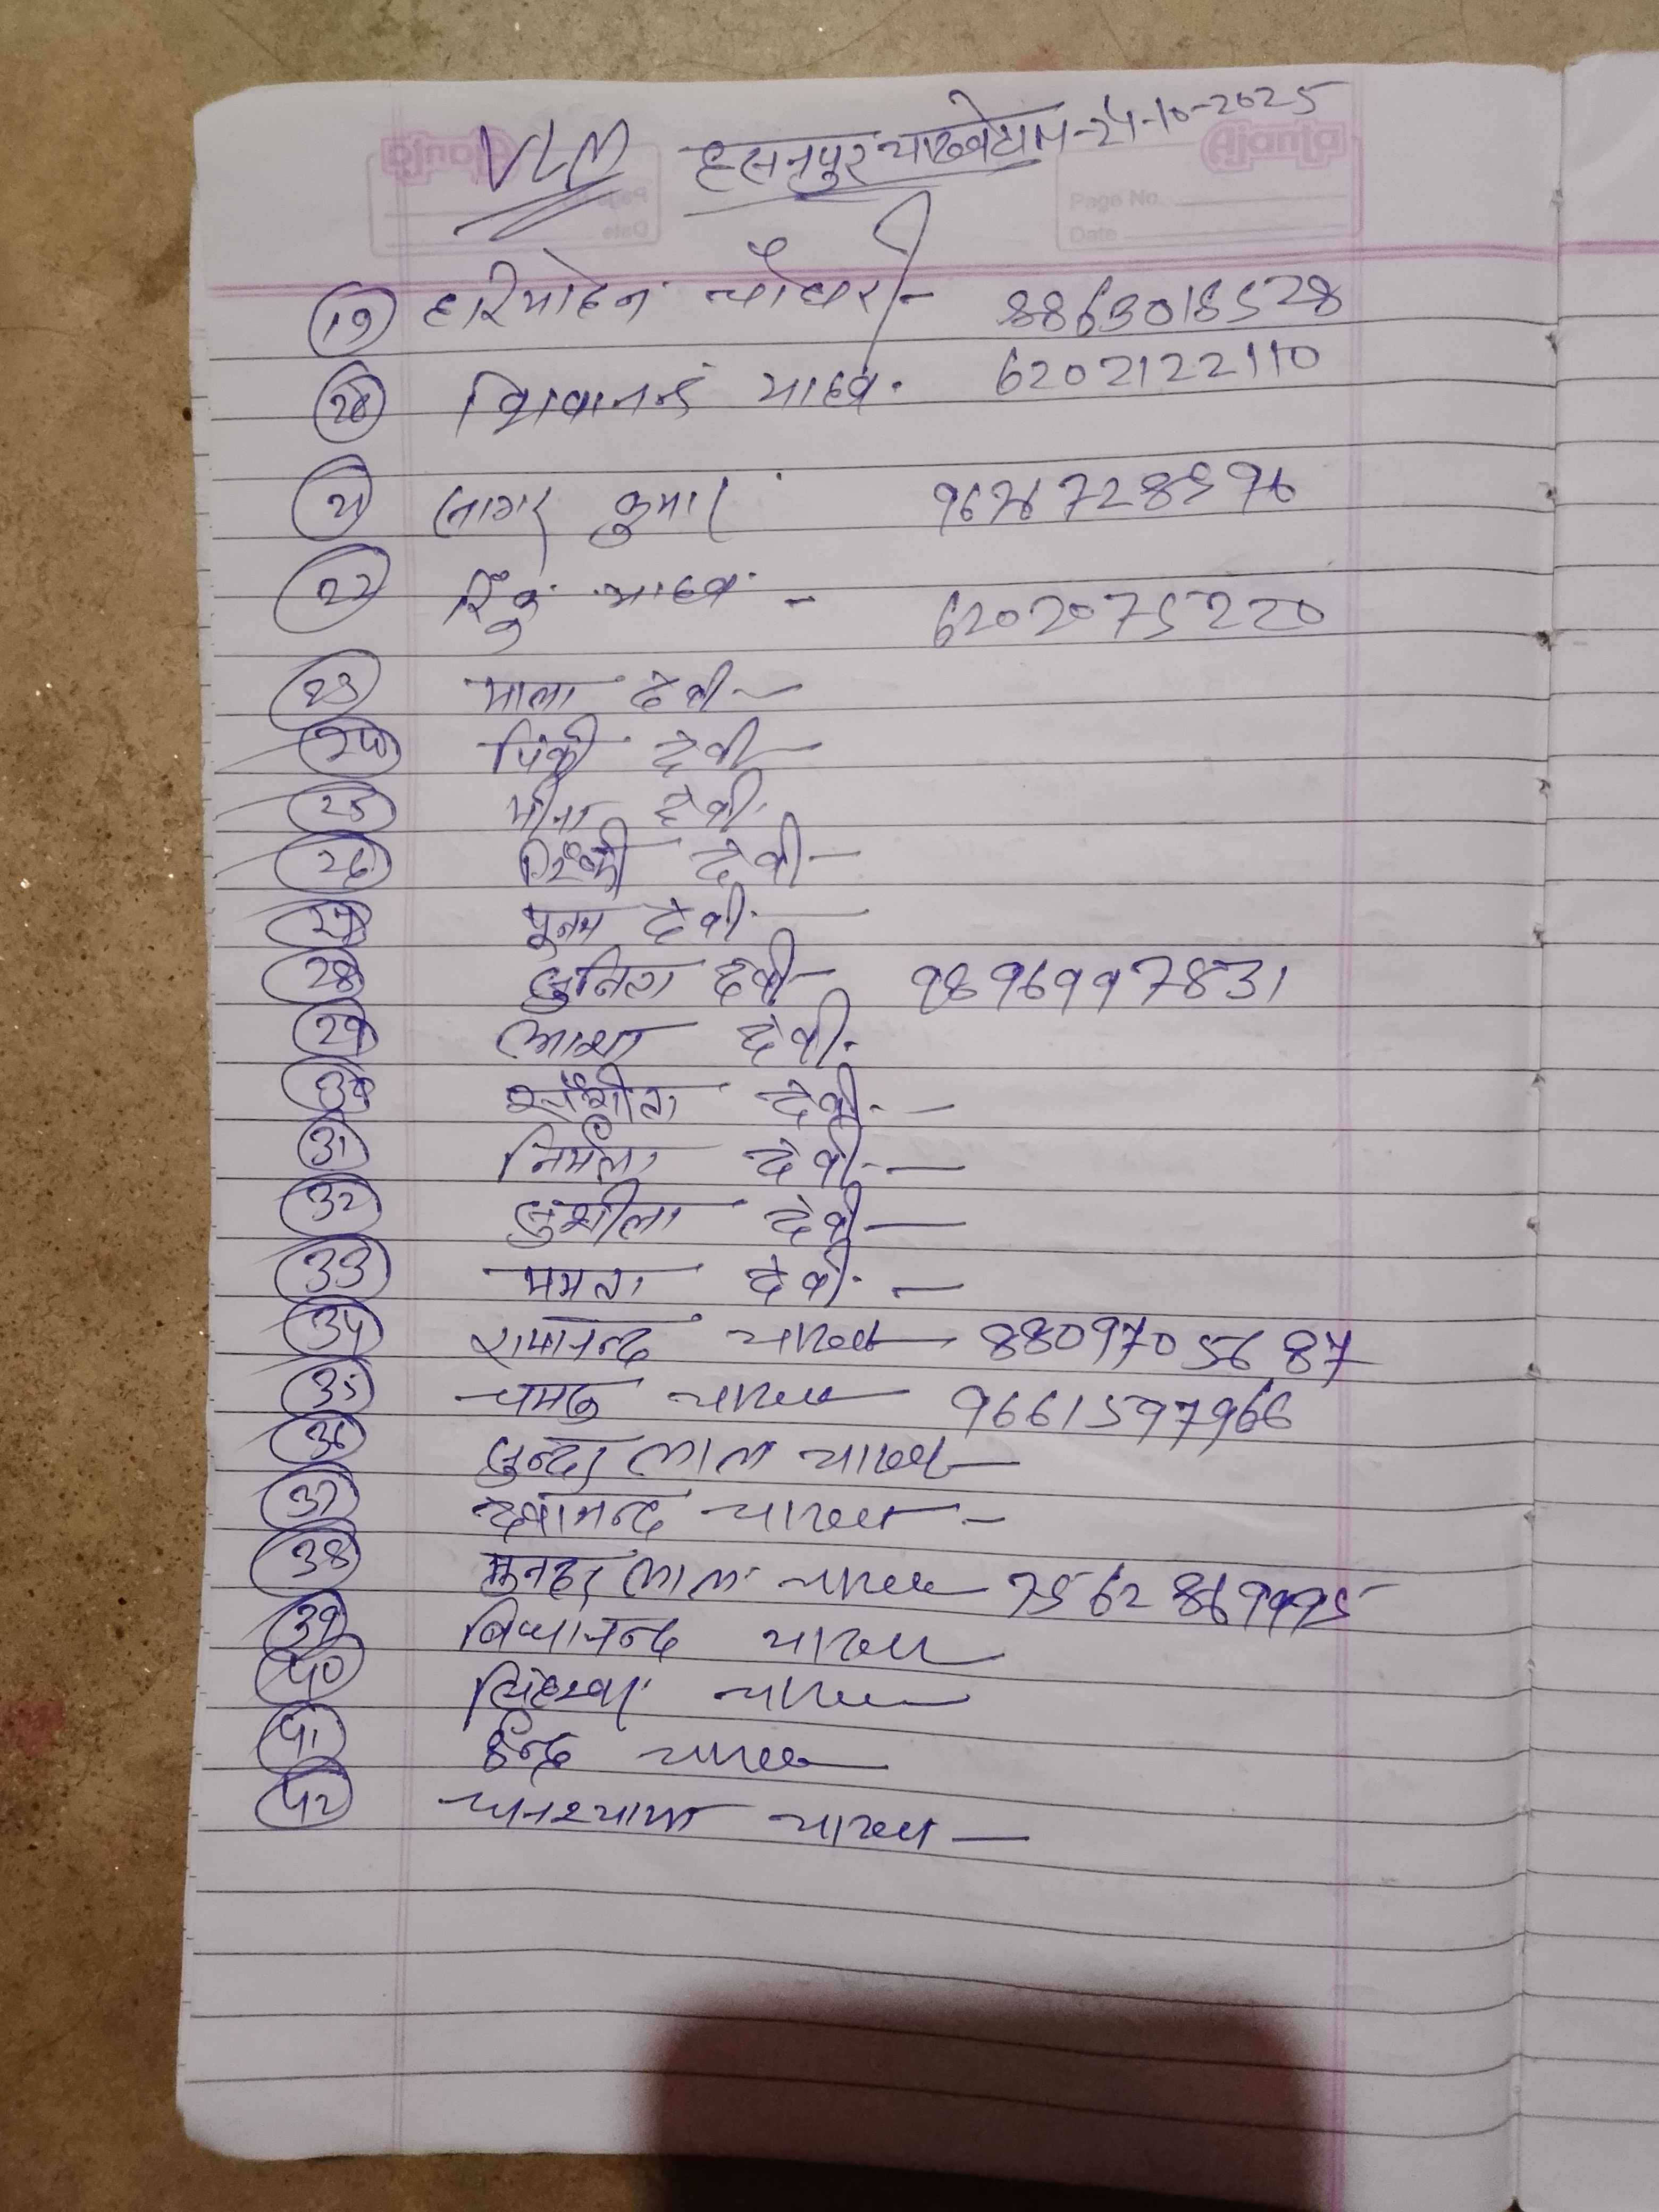 VLM हसनपुर यादव टोला-24-10-2025
Ajanta
Page No.
Date
19 हरिमोहन चौधरी- 8863018528
20 शिवानन्द यादव. 6202122110
21 सागर कुमार 9676728596
22 रिंकु यादव - 6202075220
23 माला देवी-
24 पिंकी देवी-
25 मीना देवी.
26 रिंकी देवी-
27 पूनम देवी-
28 सुनिता देवी- 9896997831
29 आशा देवी.
30 देवी.-
31 निर्मला देवी-
32 सुशीला देवी-
33 ममता देवी.-
34 रामानन्द यादव- 8809705687
35 यादव 9661597966
36 सुन्दर लाल यादव-
37 देवानन्द यादव-
38 लाल यादव
39 विद्यानन्द यादव
40 यादव
41 इन्द्र यादव
42 घनश्याम यादव-